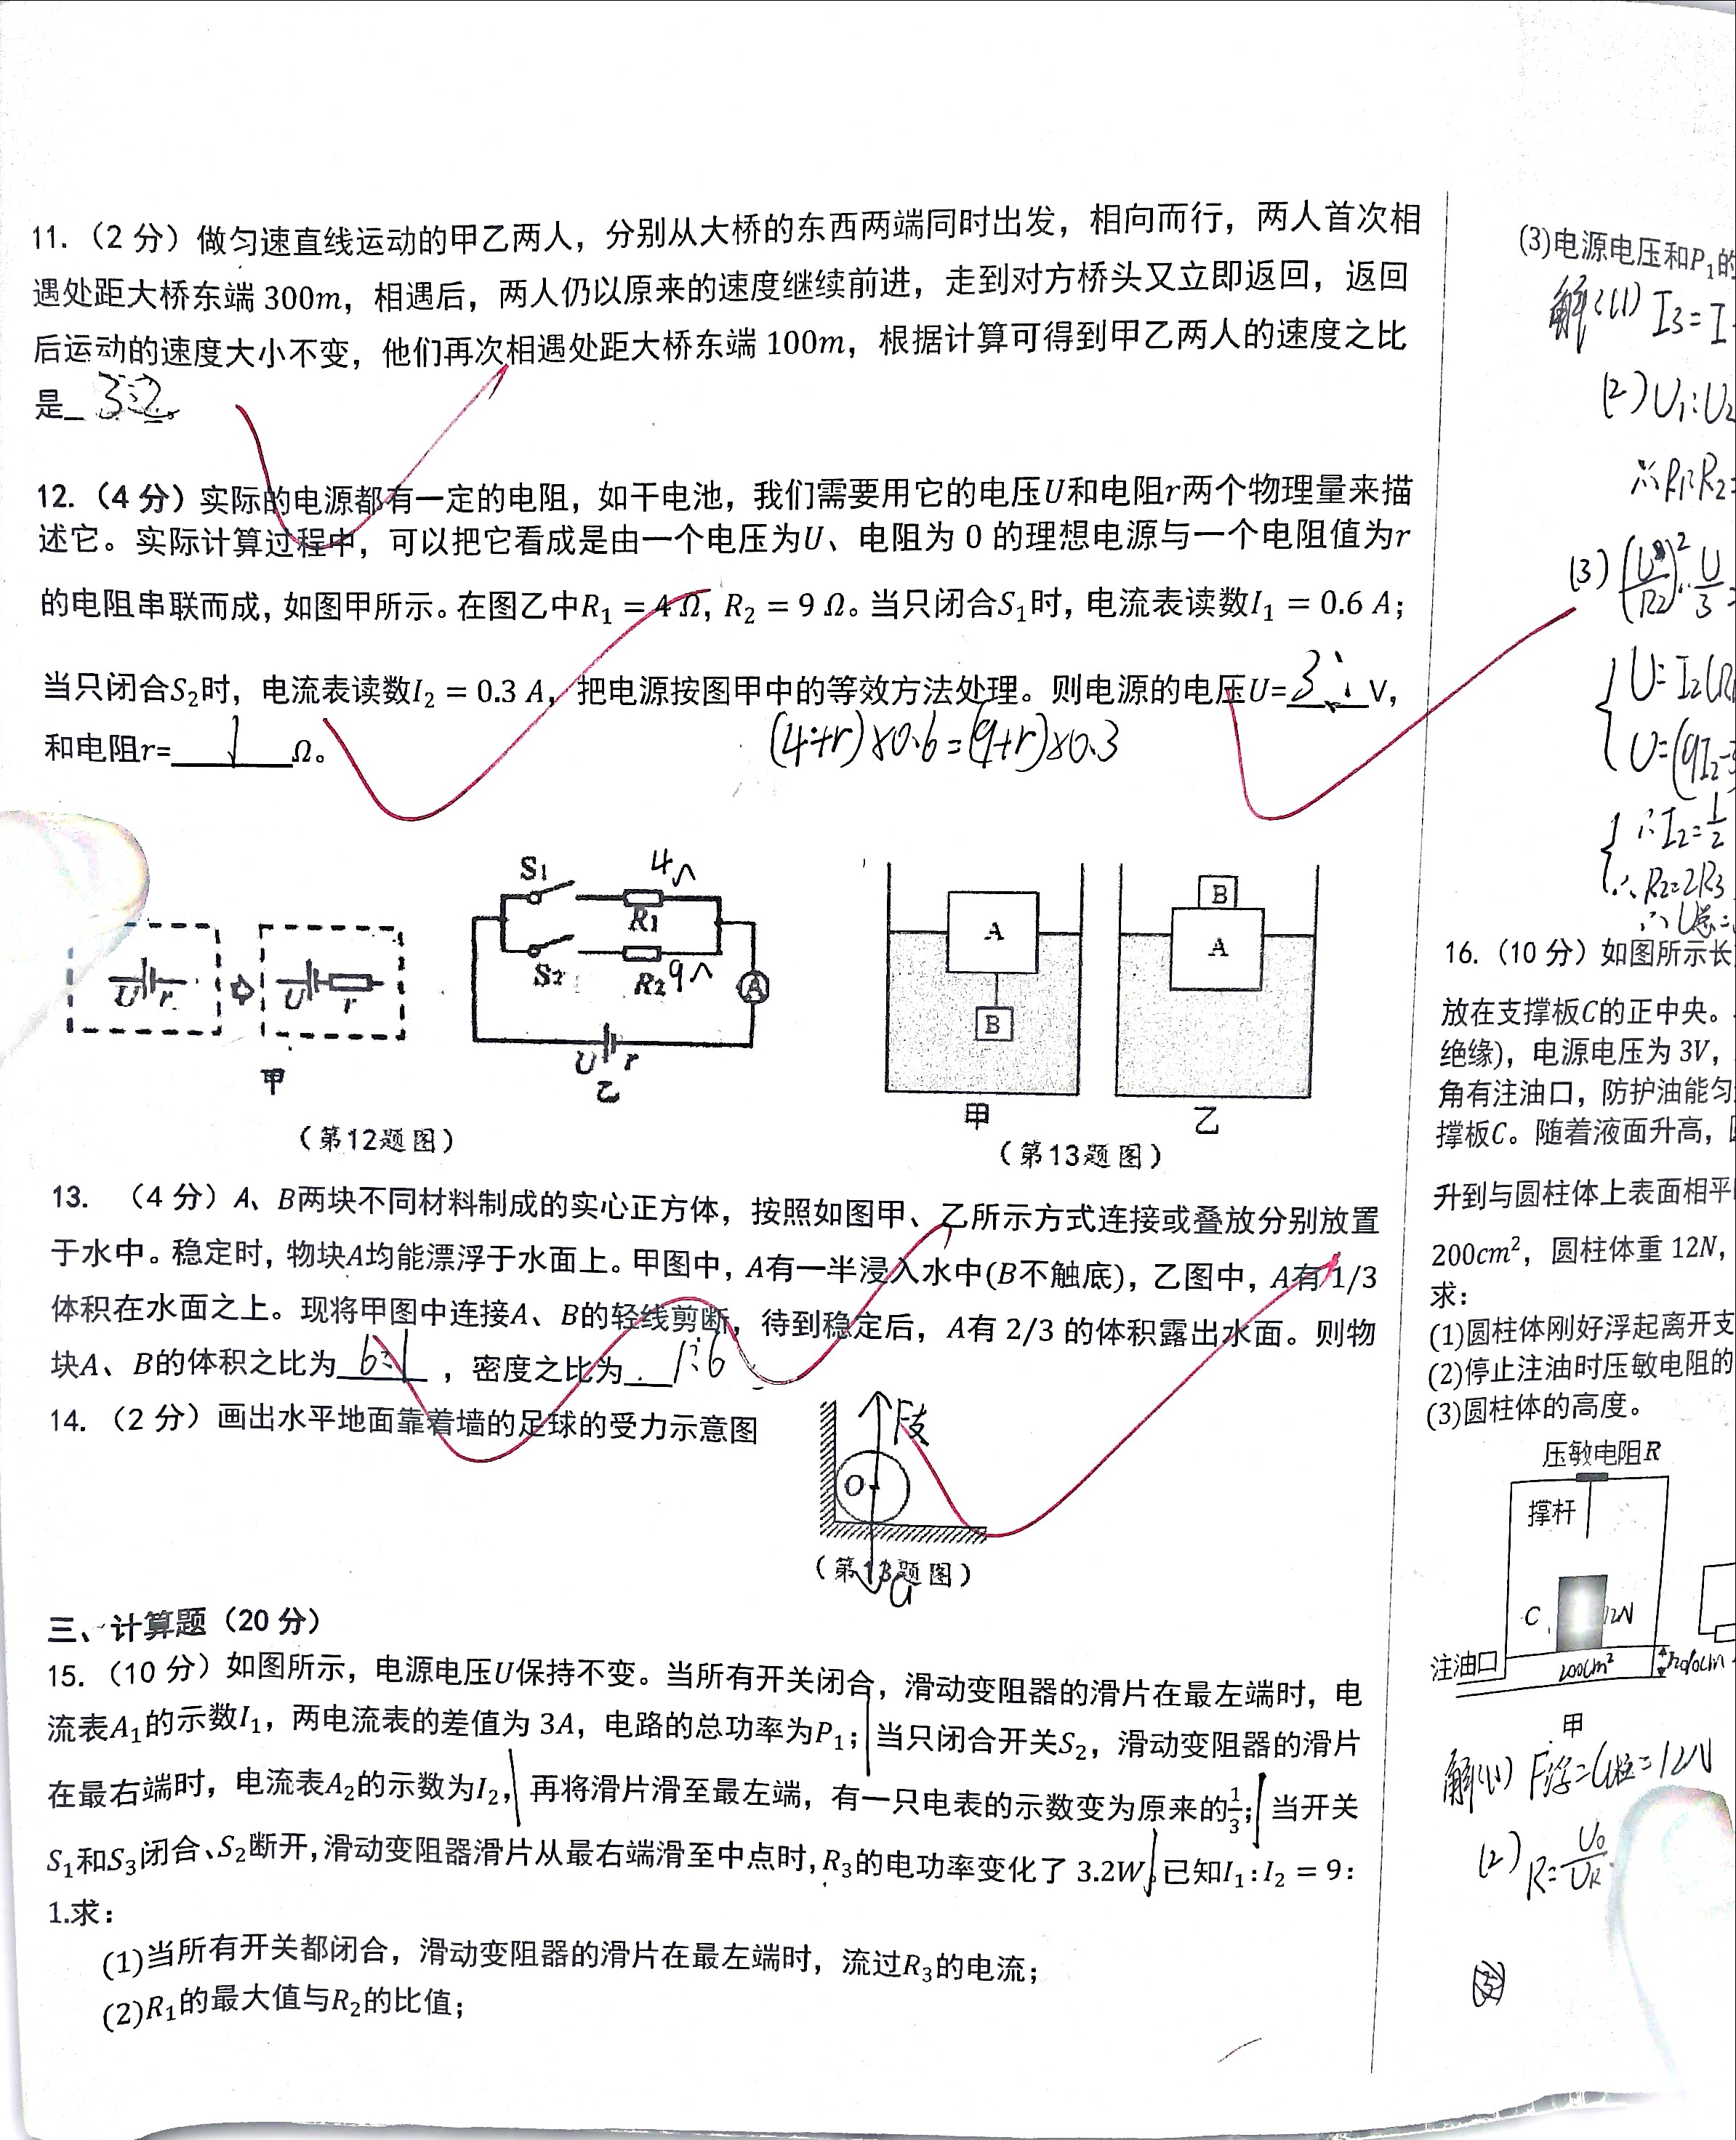 11.（2 分）做匀速直线运动的甲乙两人，分别从大桥的东西两端同时出发，相向而行，两人首次相
遇处距大桥东端 300m，相遇后，两人仍以原来的速度继续前进，走到对方桥头又立即返回，返回
后运动的速度大小不变，他们再次相遇处距大桥东端 100m，根据计算可得到甲乙两人的速度之比
是 3:2。
12.（4 分）实际的电源都有一定的电阻，如干电池，我们需要用它的电压U和电阻r两个物理量来描
述它。实际计算过程中，可以把它看成是由一个电压为U、电阻为 0 的理想电源与一个电阻值为r
的电阻串联而成，如图甲所示。在图乙中R₁ = 4 Ω, R₂ = 9 Ω。当只闭合S₁时，电流表读数I₁ = 0.6 A；
当只闭合S₂时，电流表读数I₂ = 0.3 A，把电源按图甲中的等效方法处理。则电源的电压U=3V，
和电阻r=1Ω。
(4+r)×0.6=(9+r)×0.3
S₁ 4Ω
R₁
S₂ R₂ 9Ω
U r U r
A
U r
甲
乙
（第12题图）
A
B
甲
B
A
乙
（第13题图）
13. （4 分）A、B两块不同材料制成的实心正方体，按照如图甲、乙所示方式连接或叠放分别放置
于水中。稳定时，物块A均能漂浮于水面上。甲图中，A有一半浸入水中(B不触底)，乙图中，A有 1/3
体积在水面之上。现将甲图中连接A、B的轻线剪断，待到稳定后，A有 2/3 的体积露出水面。则物
块A、B的体积之比为 6:1 ，密度之比为 1:6
14.（2 分）画出水平地面靠着墙的足球的受力示意图
F支
O
（第13题图）
G
三、计算题（20 分）
15.（10 分）如图所示，电源电压U保持不变。当所有开关闭合，滑动变阻器的滑片在最左端时，电
流表A₁的示数I₁，两电流表的差值为 3A，电路的总功率为P₁；当只闭合开关S₂，滑动变阻器的滑片
在最右端时，电流表A₂的示数为I₂，再将滑片滑至最左端，有一只电表的示数变为原来的1/3；当开关
S₁和S₃闭合、S₂断开,滑动变阻器滑片从最右端滑至中点时,R₃的电功率变化了 3.2W。已知I₁:I₂ = 9:
1.求：
(1)当所有开关都闭合，滑动变阻器的滑片在最左端时，流过R₃的电流；
(2)R₁的最大值与R₂的比值；
(3)电源电压和P₁的
解:(1) I₃=I
(2) U₁:U₂
∴R₁:R₂=
(3)
∴I₂=1/2
∴R₂=2R₃
16.（10 分）如图所示长
放在支撑板C的正中央。
绝缘)，电源电压为 3V，
角有注油口，防护油能匀
撑板C。随着液面升高，
升到与圆柱体上表面相平
200cm²，圆柱体重 12N，
求：
(1)圆柱体刚好浮起离开支
(2)停止注油时压敏电阻的
(3)圆柱体的高度。
压敏电阻R
撑杆
C
12N
注油口
200cm²
甲
解:(1) F浮=G柱=12N
(2)